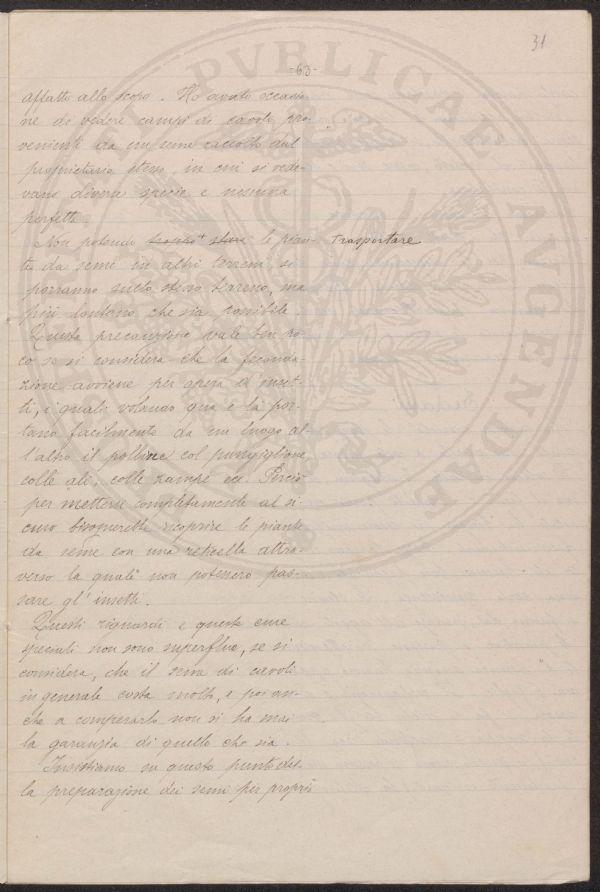 31
-63-
affatto allo scopo. Ho avuto occasio-
ne di vedere campi di cavoli pro-
venienti da un seme raccolto dal
proprietario stesso, in cui si vede-
vano diverse specie e nessuna
perfetta.
Non potendo le pian- trasportare
te da seme in altri terreni, si
porranno sullo stesso terreno, ma
più lontano che sia possibile.
Questa precauzione vale ben po-
co se si considera che la feconda-
zione avviene per opera d'inset-
ti, i quali volando qua e là por-
tano facilmente da un luogo al-
l'altro il polline col pungiglione
colle ali, colle zampe ecc. Perciò
per mettersi completamente al si-
curo bisognerebbe ricoprire le piante
da seme con una reticella attra-
verso la quale non potessero pas-
sare gl'insetti.
Questi riguardi e queste cure
speciali non sono superflue, se si
considera, che il seme di cavoli
in generale costa molto, e poi an-
che a comperarlo non si ha mai
la garanzia di quello che sia.
Insistiamo su questo punto del-
la preparazione dei semi per proprio
PVBLICAE AVGENDAE